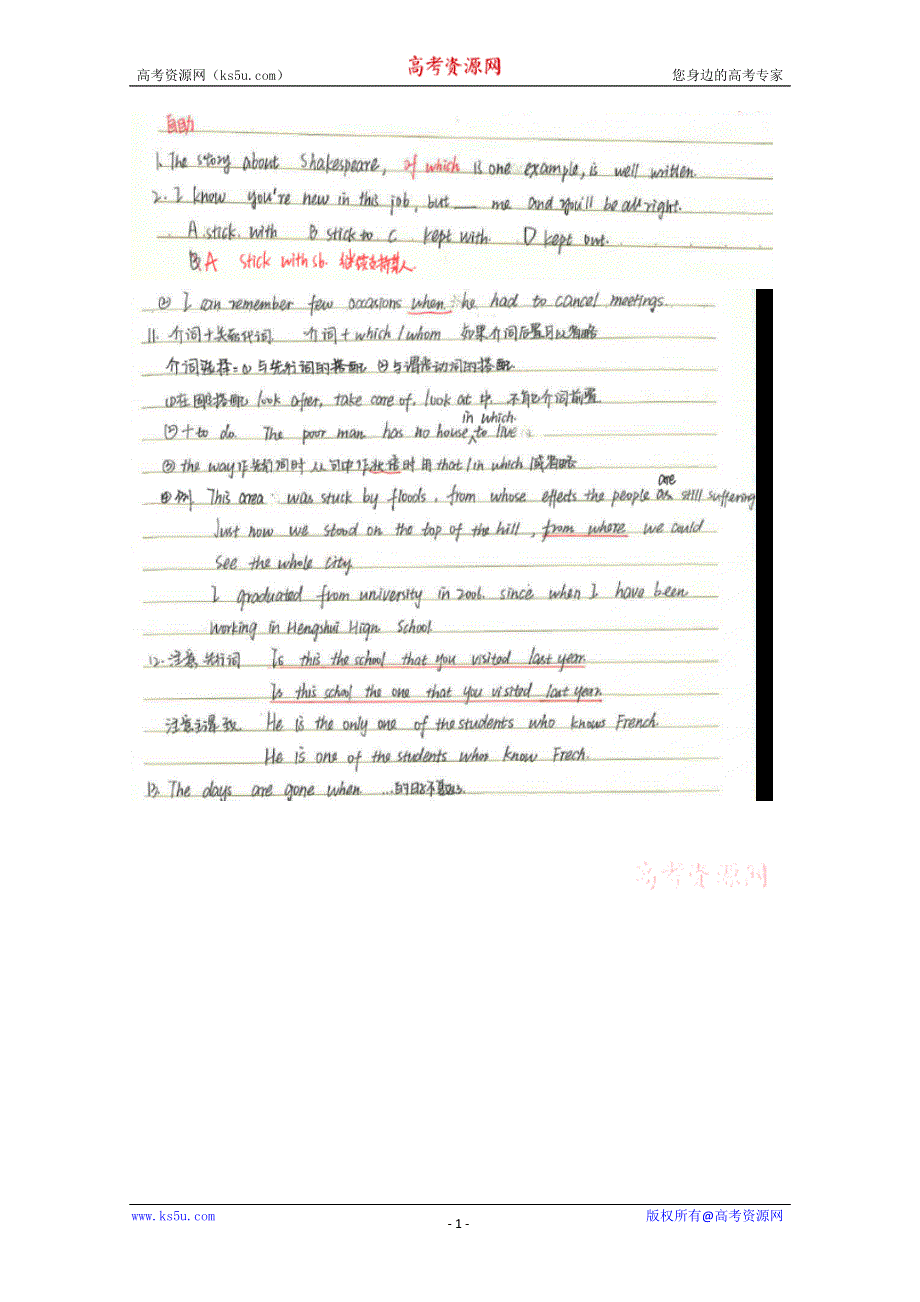 高考资源网(ks5u.com) 高考资源网 您身边的高考专家
自助
1. The story about Shakespeare, of which is one example, is well written.
2. I know you're new in this job, but ___ me and you'll be all right.
A. stick with B stick to C. kept with. D kept out.
A stick with sb. 继续支持某人.
② I can remember few occasions when he had to cancel meetings.
11. 介词+关系代词. 介词+which/whom 如果介词后置可以省略
介词选择: ①与先行词的搭配 ②与谓语动词的搭配.
①在固定搭配 look after, take care of, look at 中, 不能把介词前置
in which.
②+to do. The poor man has no house ^ to live
③ the way作先行词时 从句中作状语时用that/in which 或省略
are
④例. This area was stuck by floods, from whose effects the people as still suffering
Just now we stood on the top of the hill, from where we could
see the whole city
I graduated from university in 2006. since when I have been
working in Hengshui Hign School.
12. 注意先行词 Is this the school that you visited last year.
Is this school the one that you visited last year.
注意主谓一致 He is the only one of the students who knows French.
He is one of the students who know Frech.
13. The days are gone when ...的日子不复
高考资源网
www.ks5u.com - 1 - 版权所有@高考资源网